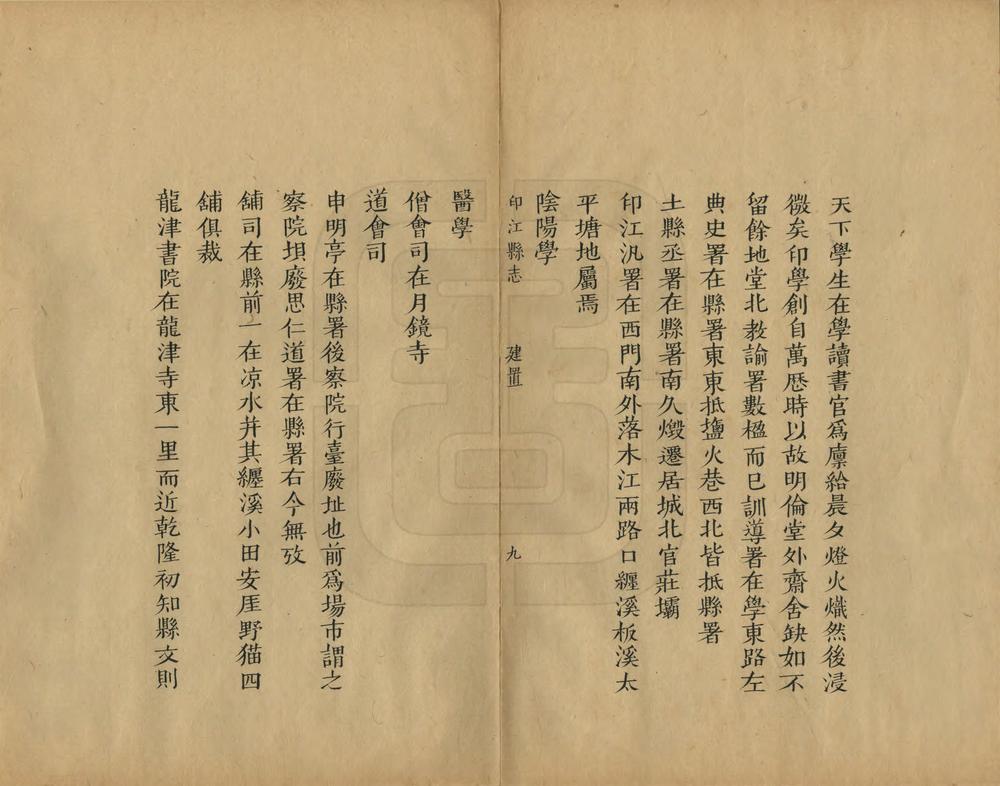 天下學生在學讀書官爲廪給晨夕燈火熾然後浸
微矣印學創自萬厯時以故明倫堂外齋舍缺如不
留餘地堂北教諭署數楹而已訓導署在學東路左
典史署在縣署東東抵鹽火巷西北皆抵縣署
土縣丞署在縣署南久燬遷居城北官莊壩
印江汛署在西門南外落木江兩路口纒溪板溪太
平塘地屬焉
陰陽學
印江縣志 建置 九
醫學
僧會司在月鏡寺
道會司
申明亭在縣署後察院行臺廢址也前爲場市謂之
察院垻廢思仁道署在縣署右今無攷
舖司在縣前一在凉水井其纒溪小田安厓野猫四
舖俱裁
龍津書院在龍津寺東一里而近乾隆初知縣文則